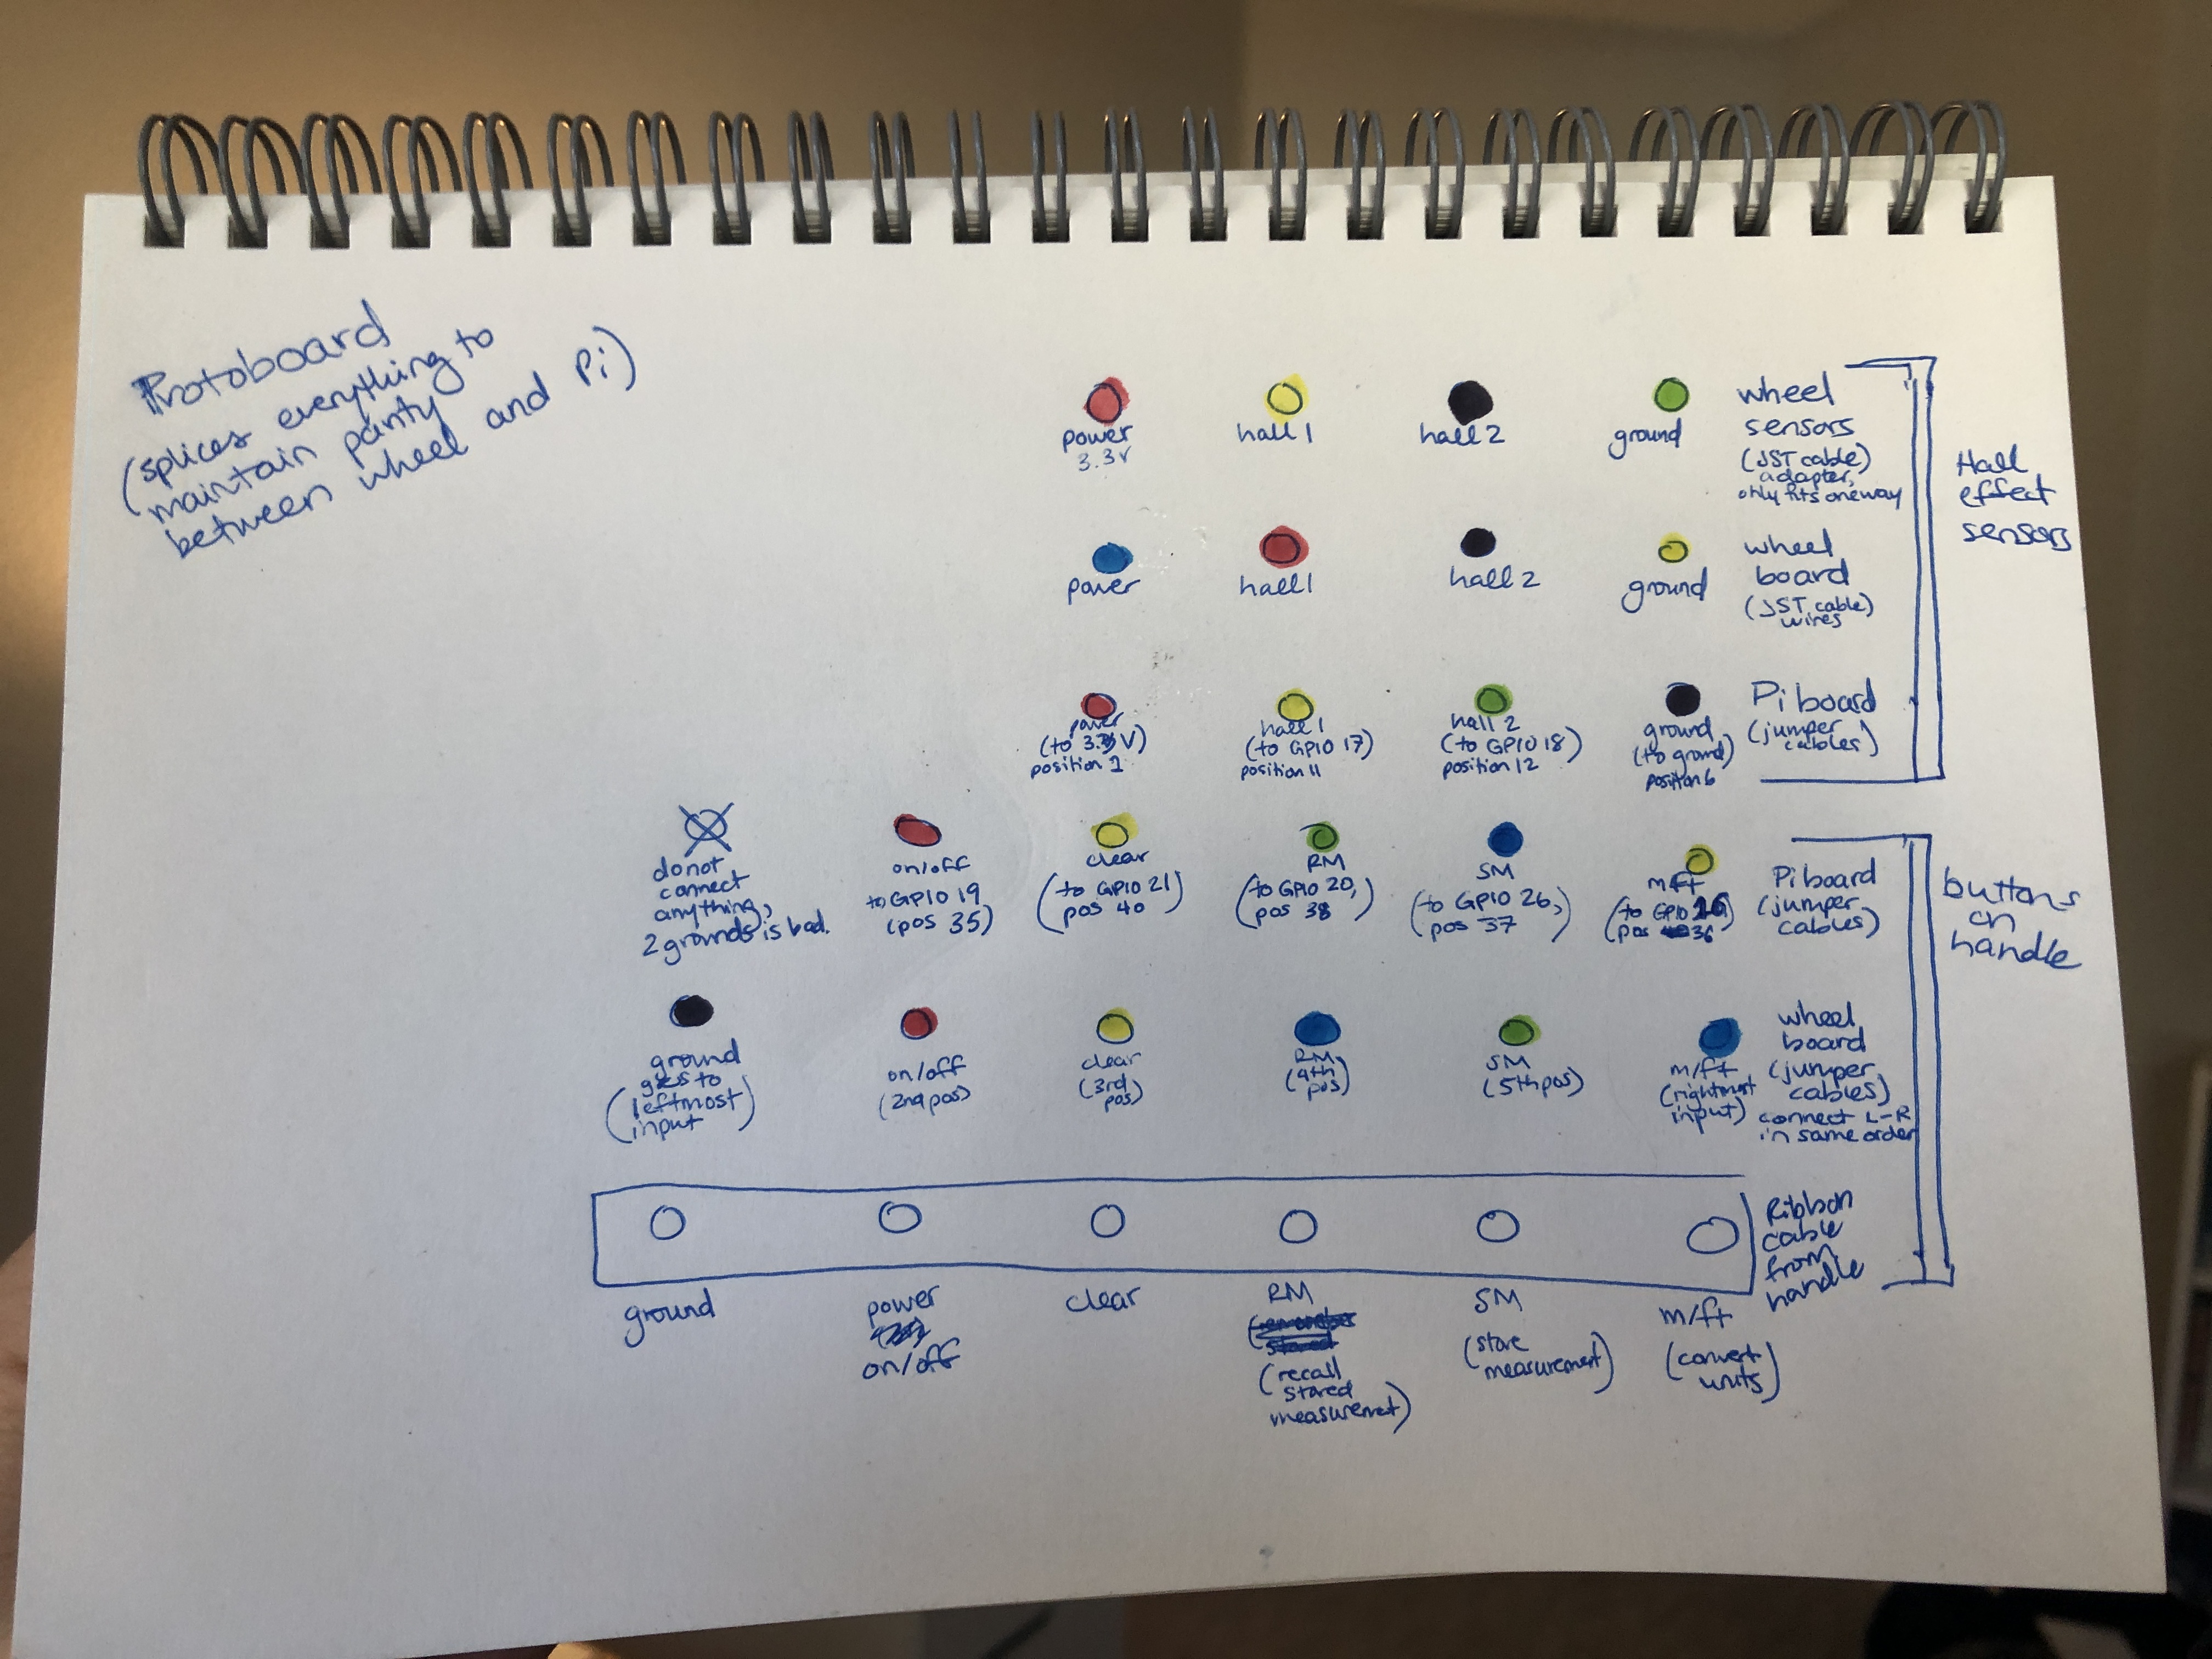 Protoboard
(splices everything to
maintain parity
between wheel and Pi)
power
3.3v
hall 1
hall 2
ground
wheel
sensors
(JST cable)
adapter,
only fits one way
power
hall 1
hall 2
ground
wheel
board
(JST cable)
wires
power
(to 3.3V)
position 1
hall 1
(to GPIO 17)
position 11
hall 2
(to GPIO 18)
position 12
ground
(to ground)
position 6
Pi board
(jumper
cables)
Hall
effect
sensors
do not
connect
anything,
2 grounds is bad.
on/off
to GPIO 19
(pos 35)
clear
(to GPIO 21)
pos 40
RM
(to GPIO 20,)
pos 38
SM
(to GPIO 26,)
pos 37
m/ft
(to GPIO 16)
pos 36
Pi board
(jumper
cables)
ground
goes to
(leftmost)
input
on/off
(2nd pos)
clear
(3rd
pos)
RM
(4th
pos)
SM
(5th pos)
m/ft
(rightmost
input)
wheel
board
(jumper
cables)
connect L-R
in same order
buttons
on
handle
Ribbon
cable
from
handle
ground
power
on/off
clear
RM
(recall
stored
measuremet)
SM
(store
measurement)
m/ft
(convert
units)